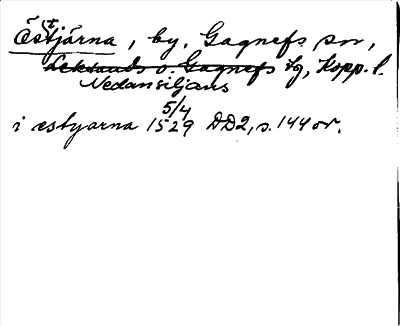 Ës(t)järna, by, Gagnefs sn,
Leksands o. Gagnefs tg, Kopp. l.
Nedansiljans
i æstyarna 1529 5/4 DD2, s. 144 or.